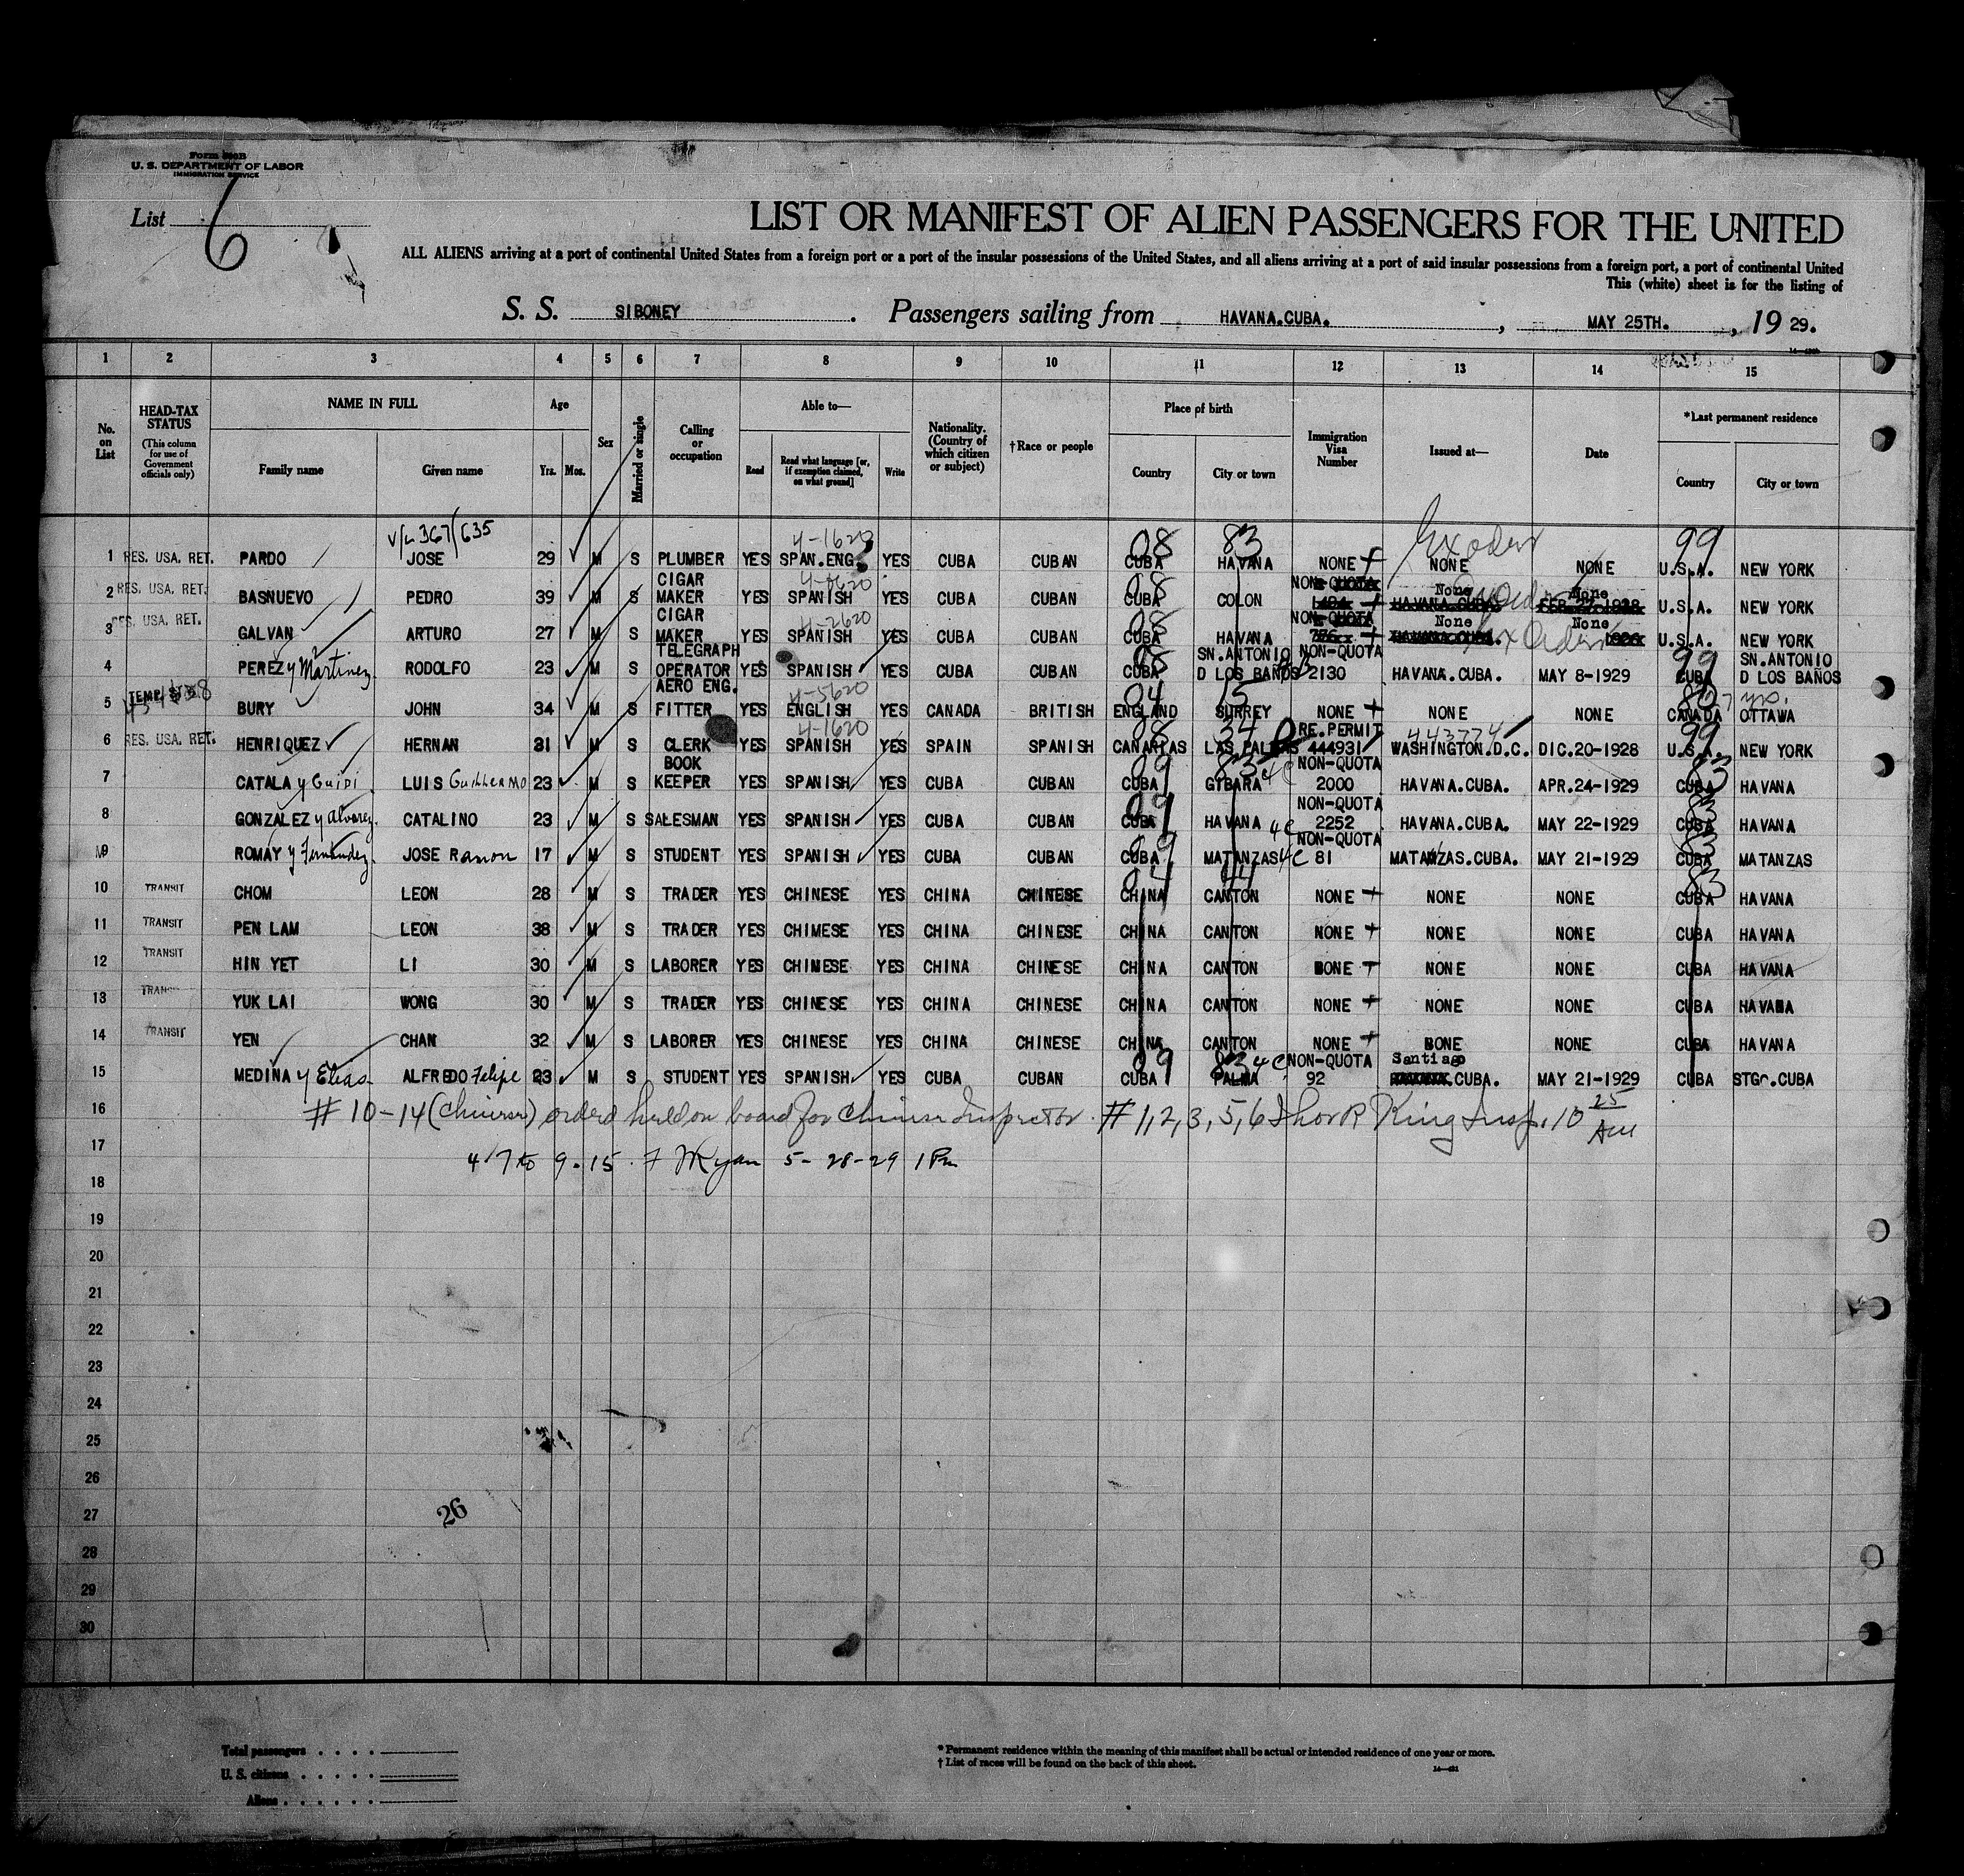 Form 500B
U. S. DEPARTMENT OF LABOR
IMMIGRATION SERVICE
List 6
LIST OR MANIFEST OF ALIEN PASSENGERS FOR THE UNITED
ALL ALIENS arriving at a port of continental United States from a foreign port or a port of the insular possessions of the United States, and all aliens arriving at a port of said insular possessions from a foreign port, a port of continental United
This (white) sheet is for the listing of
S. S. SIBONEY. Passengers sailing from HAVANA.CUBA., MAY 25TH., 19 29.
1 2 3 4 5 6 7 8 9 10 11 12 13 14 15
No. on List
HEAD-TAX STATUS (This column for use of Government officials only)
NAME IN FULL Family name Given name
Age Yrs. Mos.
Sex
Married or single
Calling or occupation
Able to— Read Read what language [or, if exemption claimed, on what ground] Write
Nationality. (Country of which citizen or subject)
†Race or people
Place of birth Country City or town
Immigration Visa Number
Issued at—
Date
*Last permanent residence Country City or town
V/L 367/635 4-1620 08 83 99
1 RES. USA. RET. PARDO JOSE 29 M S PLUMBER YES SPAN.ENG. YES CUBA CUBAN CUBA HAVANA NONE + NONE NONE U.S.A. NEW YORK
2 RES. USA. RET. BASNUEVO PEDRO 39 M S CIGAR MAKER YES SPANISH YES CUBA CUBAN CUBA COLON NON-QUOTA HAVANA.CUBA. None FEB.27-1928 None U.S.A. NEW YORK
3 RES. USA. RET. GALVAN ARTURO 27 M S CIGAR MAKER YES SPANISH YES CUBA CUBAN CUBA HAVANA NON-QUOTA HAVANA.CUBA. None 1926 None U.S.A. NEW YORK
4 PEREZ y Martinez RODOLFO 23 M S TELEGRAPH OPERATOR YES SPANISH YES CUBA CUBAN CUBA SN.ANTONIO D LOS BAÑOS NON-QUOTA 2130 HAVANA.CUBA. MAY 8-1929 CUBA SN.ANTONIO D LOS BAÑOS
5 TEMP. BURY JOHN 34 M S AERO ENG. FITTER YES ENGLISH YES CANADA BRITISH ENGLAND SURREY NONE + NONE NONE CANADA OTTAWA
6 RES. USA. RET. HENRIQUEZ HERNAN 31 M S CLERK YES SPANISH YES SPAIN SPANISH CANARIAS LAS PALMAS RE.PERMIT 444931 443774 WASHINGTON.D.C. DIC.20-1928 U.S.A. NEW YORK
7 CATALA y Guipi LUIS Guillermo 23 M S BOOK KEEPER YES SPANISH YES CUBA CUBAN CUBA GYBARA NON-QUOTA 2000 HAVANA.CUBA. APR.24-1929 CUBA HAVANA
8 GONZALEZ y Alvarez CATALINO 23 M S SALESMAN YES SPANISH YES CUBA CUBAN CUBA HAVANA NON-QUOTA 2252 HAVANA.CUBA. MAY 22-1929 CUBA HAVANA
9 ROMAY y Fernandez JOSE Ramon 17 M S STUDENT YES SPANISH YES CUBA CUBAN CUBA MATANZAS NON-QUOTA 81 MATANZAS.CUBA. MAY 21-1929 CUBA MATANZAS
10 TRANSIT CHOM LEON 28 M S TRADER YES CHINESE YES CHINA CHINESE CHINA CANTON NONE + NONE NONE CUBA HAVANA
11 TRANSIT PEN LAM LEON 38 M S TRADER YES CHIMESE YES CHINA CHINESE CHINA CANTON NONE + NONE NONE CUBA HAVANA
12 TRANSIT HIN YET LI 30 M S LABORER YES CHINESE YES CHINA CHINESE CHINA CANTON BONE + NONE NONE CUBA HAVANA
13 TRANSIT YUK LAI WONG 30 M S TRADER YES CHINESE YES CHINA CHINESE CHINA CANTON NONE + NONE NONE CUBA HAVANA
14 TRANSIT YEN CHAN 32 M S LABORER YES CHINESE YES CHINA CHINESE CHINA CANTON NONE + BONE NONE CUBA HAVANA
15 MEDINA y Elias ALFREDO Felipe 23 M S STUDENT YES SPANISH YES CUBA CUBAN CUBA PALMA NON-QUOTA 92 Santiago .CUBA. MAY 21-1929 CUBA STGO.CUBA
16 # 10-14 (Chinese) ordered held on board for Chinese Inspector. # 1,2,3,5,6 King Insp. 10 25 AM
17 4/7 to 9-15. Ryan 5-28-29 1 Pm
18
19
20
21
22
23
24
25
26
27
28
29
30
26
Total passengers
U. S. citizens
Aliens
* Permanent residence within the meaning of this manifest shall be actual or intended residence of one year or more.
† List of races will be found on the back of this sheet.